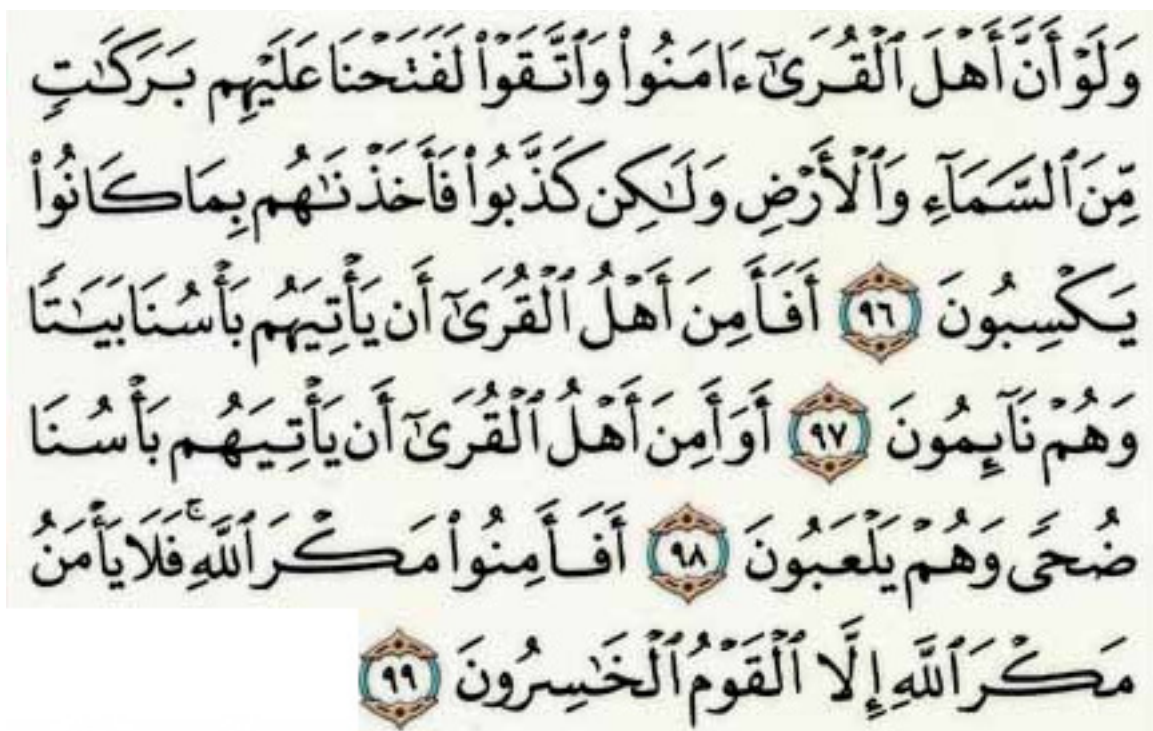 وَلَوۡ أَنَّ أَهۡلَ ٱلۡقُرَىٰٓ ءَامَنُواْ وَٱتَّقَوۡاْ لَفَتَحۡنَا عَلَيۡهِم بَرَكَٰتٖ
مِّنَ ٱلسَّمَآءِ وَٱلۡأَرۡضِ وَلَٰكِن كَذَّبُواْ فَأَخَذۡنَٰهُم بِمَا كَانُواْ
يَكۡسِبُونَ ٩٦ أَفَأَمِنَ أَهۡلُ ٱلۡقُرَىٰٓ أَن يَأۡتِيَهُم بَأۡسُنَا بَيَٰتٗا
وَهُمۡ نَآئِمُونَ ٩٧ أَوَأَمِنَ أَهۡلُ ٱلۡقُرَىٰٓ أَن يَأۡتِيَهُم بَأۡسُنَا
ضُحٗى وَهُمۡ يَلۡعَبُونَ ٩٨ أَفَأَمِنُواْ مَكۡرَ ٱللَّهِۚ فَلَا يَأۡمَنُ
مَكۡرَ ٱللَّهِ إِلَّا ٱلۡقَوۡمُ ٱلۡخَٰسِرُونَ ٩٩